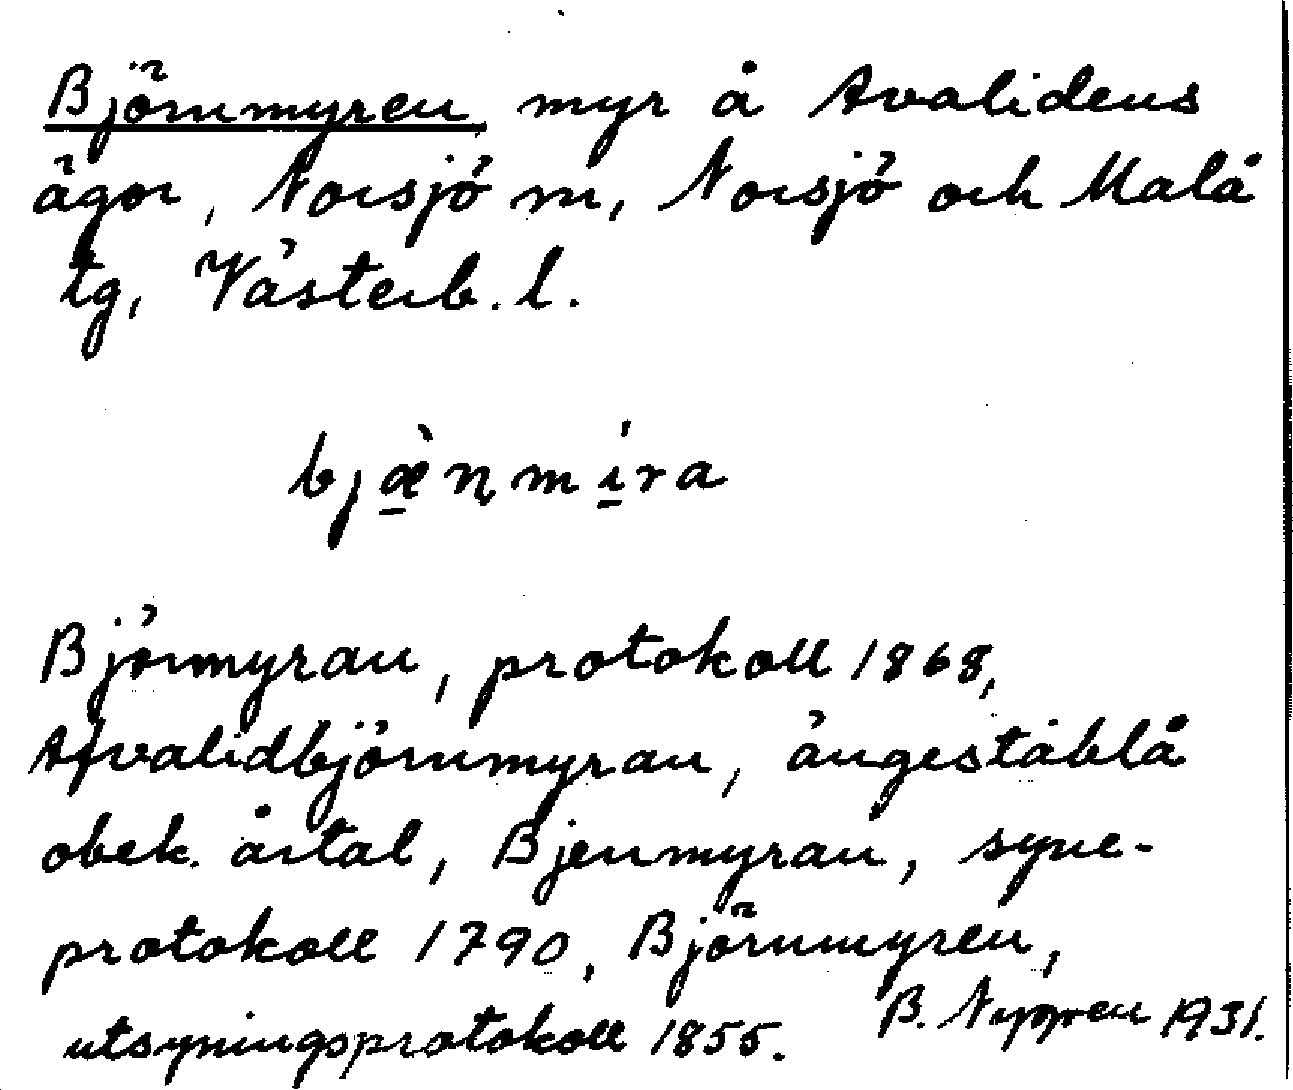 Björnmyren myr å Avalidens
ägor, Norsjö sn, Norsjö och Malå
tg, Västerb. l.
bjæ̠̀ɳmı̠́ra
Björnmyran, protokoll 1868,
Afvalidbjörnmyran, ängestablå
obek. årtal, Bjenmyran, syne-
protokoll 1790, Björnmyren,
utsyningsprotokoll 1855. B. Nygren 1931.